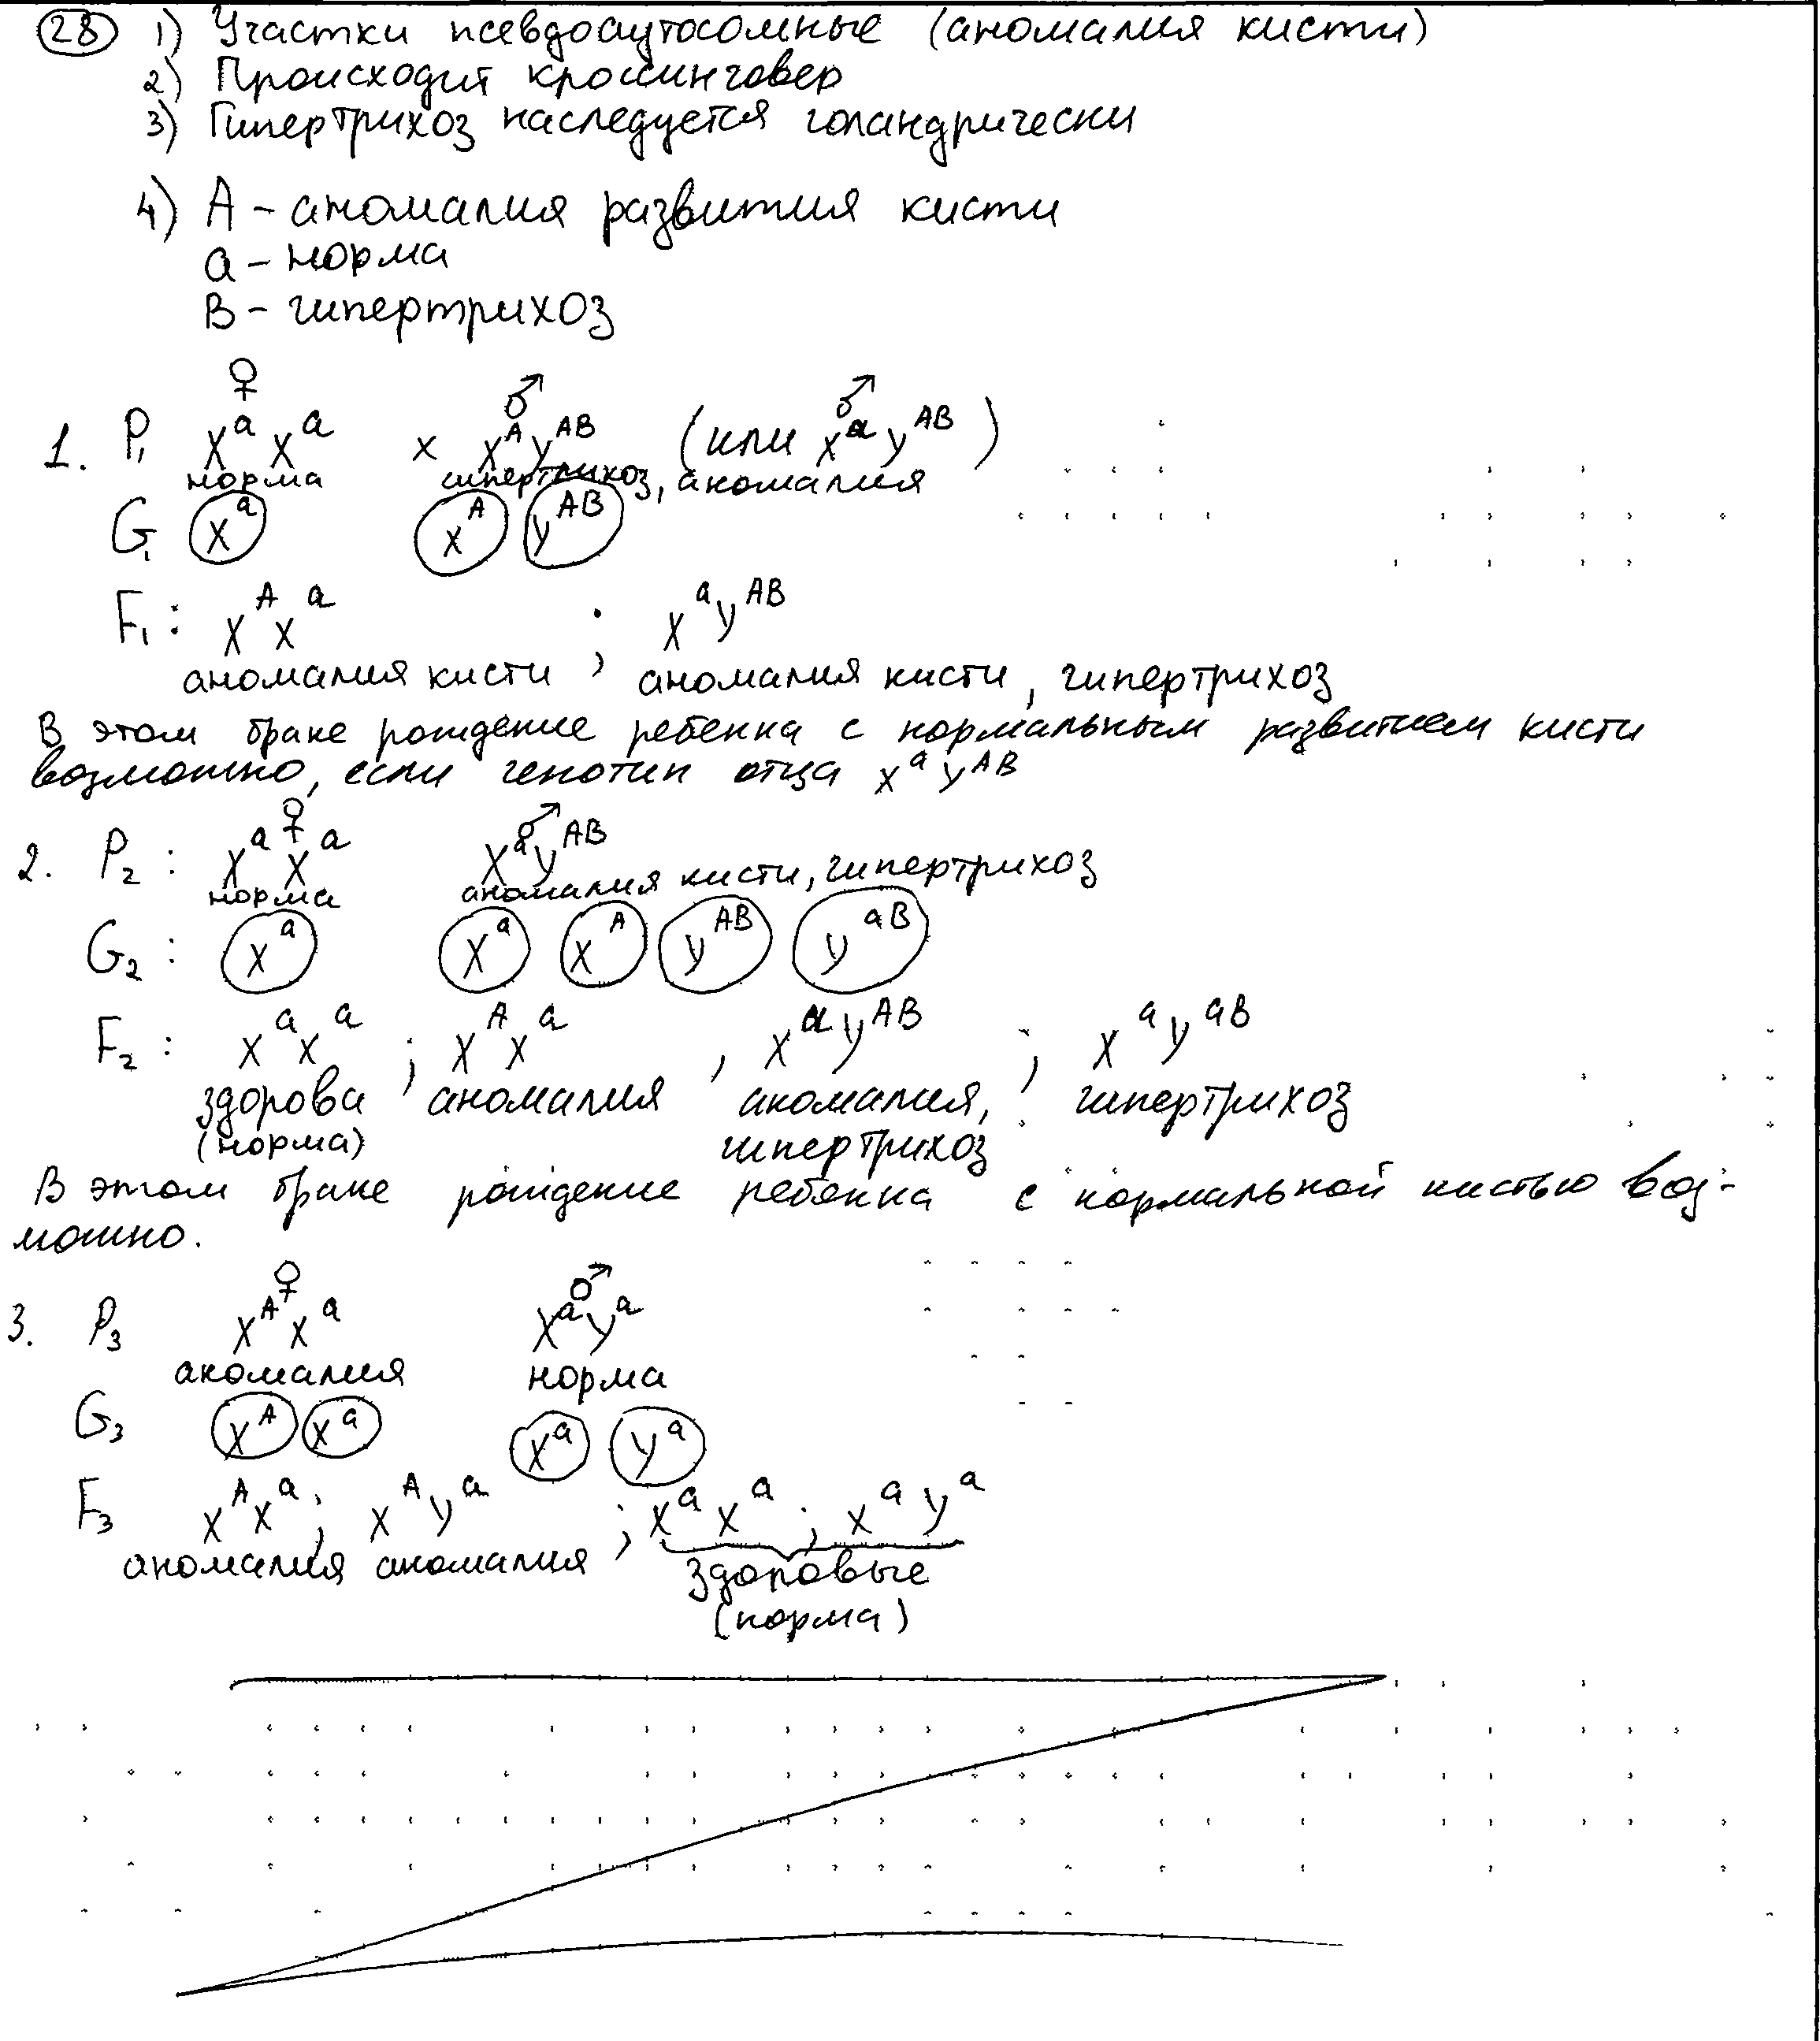 28 1) Участки псевдоаутосомные (аномалия кисти)
2) Происходит кроссинговер
3) Гипертрихоз наследуется голандрически
4) А - аномалия развития кисти
а - норма
В - гипертрихоз
♀ ♂ ♂
1. P₁ XᵃXᵃ x XᴬYᴬᴮ (или XᵃYᴬᴮ)
норма гипертрихоз, аномалия
G₁ Xᵃ Xᴬ Yᴬᴮ
F₁: XᴬXᵃ ; XᵃYᴬᴮ
аномалия кисти аномалия кисти, гипертрихоз
В этом браке рождение ребенка с нормальным развитием кисти
возможно, если генотип отца XᵃYᴬᴮ
♀ ♂
2. P₂: XᵃXᵃ XᵃYᴬᴮ
норма аномалия кисти, гипертрихоз
G₂: Xᵃ Xᵃ Xᴬ Yᴬᴮ Yᵃᴮ
F₂: XᵃXᵃ ; XᴬXᵃ , XᵃYᴬᴮ ; XᵃYᵃᴮ
здорова аномалия аномалия, гипертрихоз
(норма) гипертрихоз
В этом браке рождение ребенка с нормальной кистью воз-
можно.
♀ ♂
3. P₃ XᴬXᵃ XᵃYᵃ
аномалия норма
G₃ Xᴬ Xᵃ Xᵃ Yᵃ
F₃ XᴬXᵃ ; XᴬYᵃ ; XᵃXᵃ ; XᵃYᵃ
аномалия аномалия здоровые
(норма)